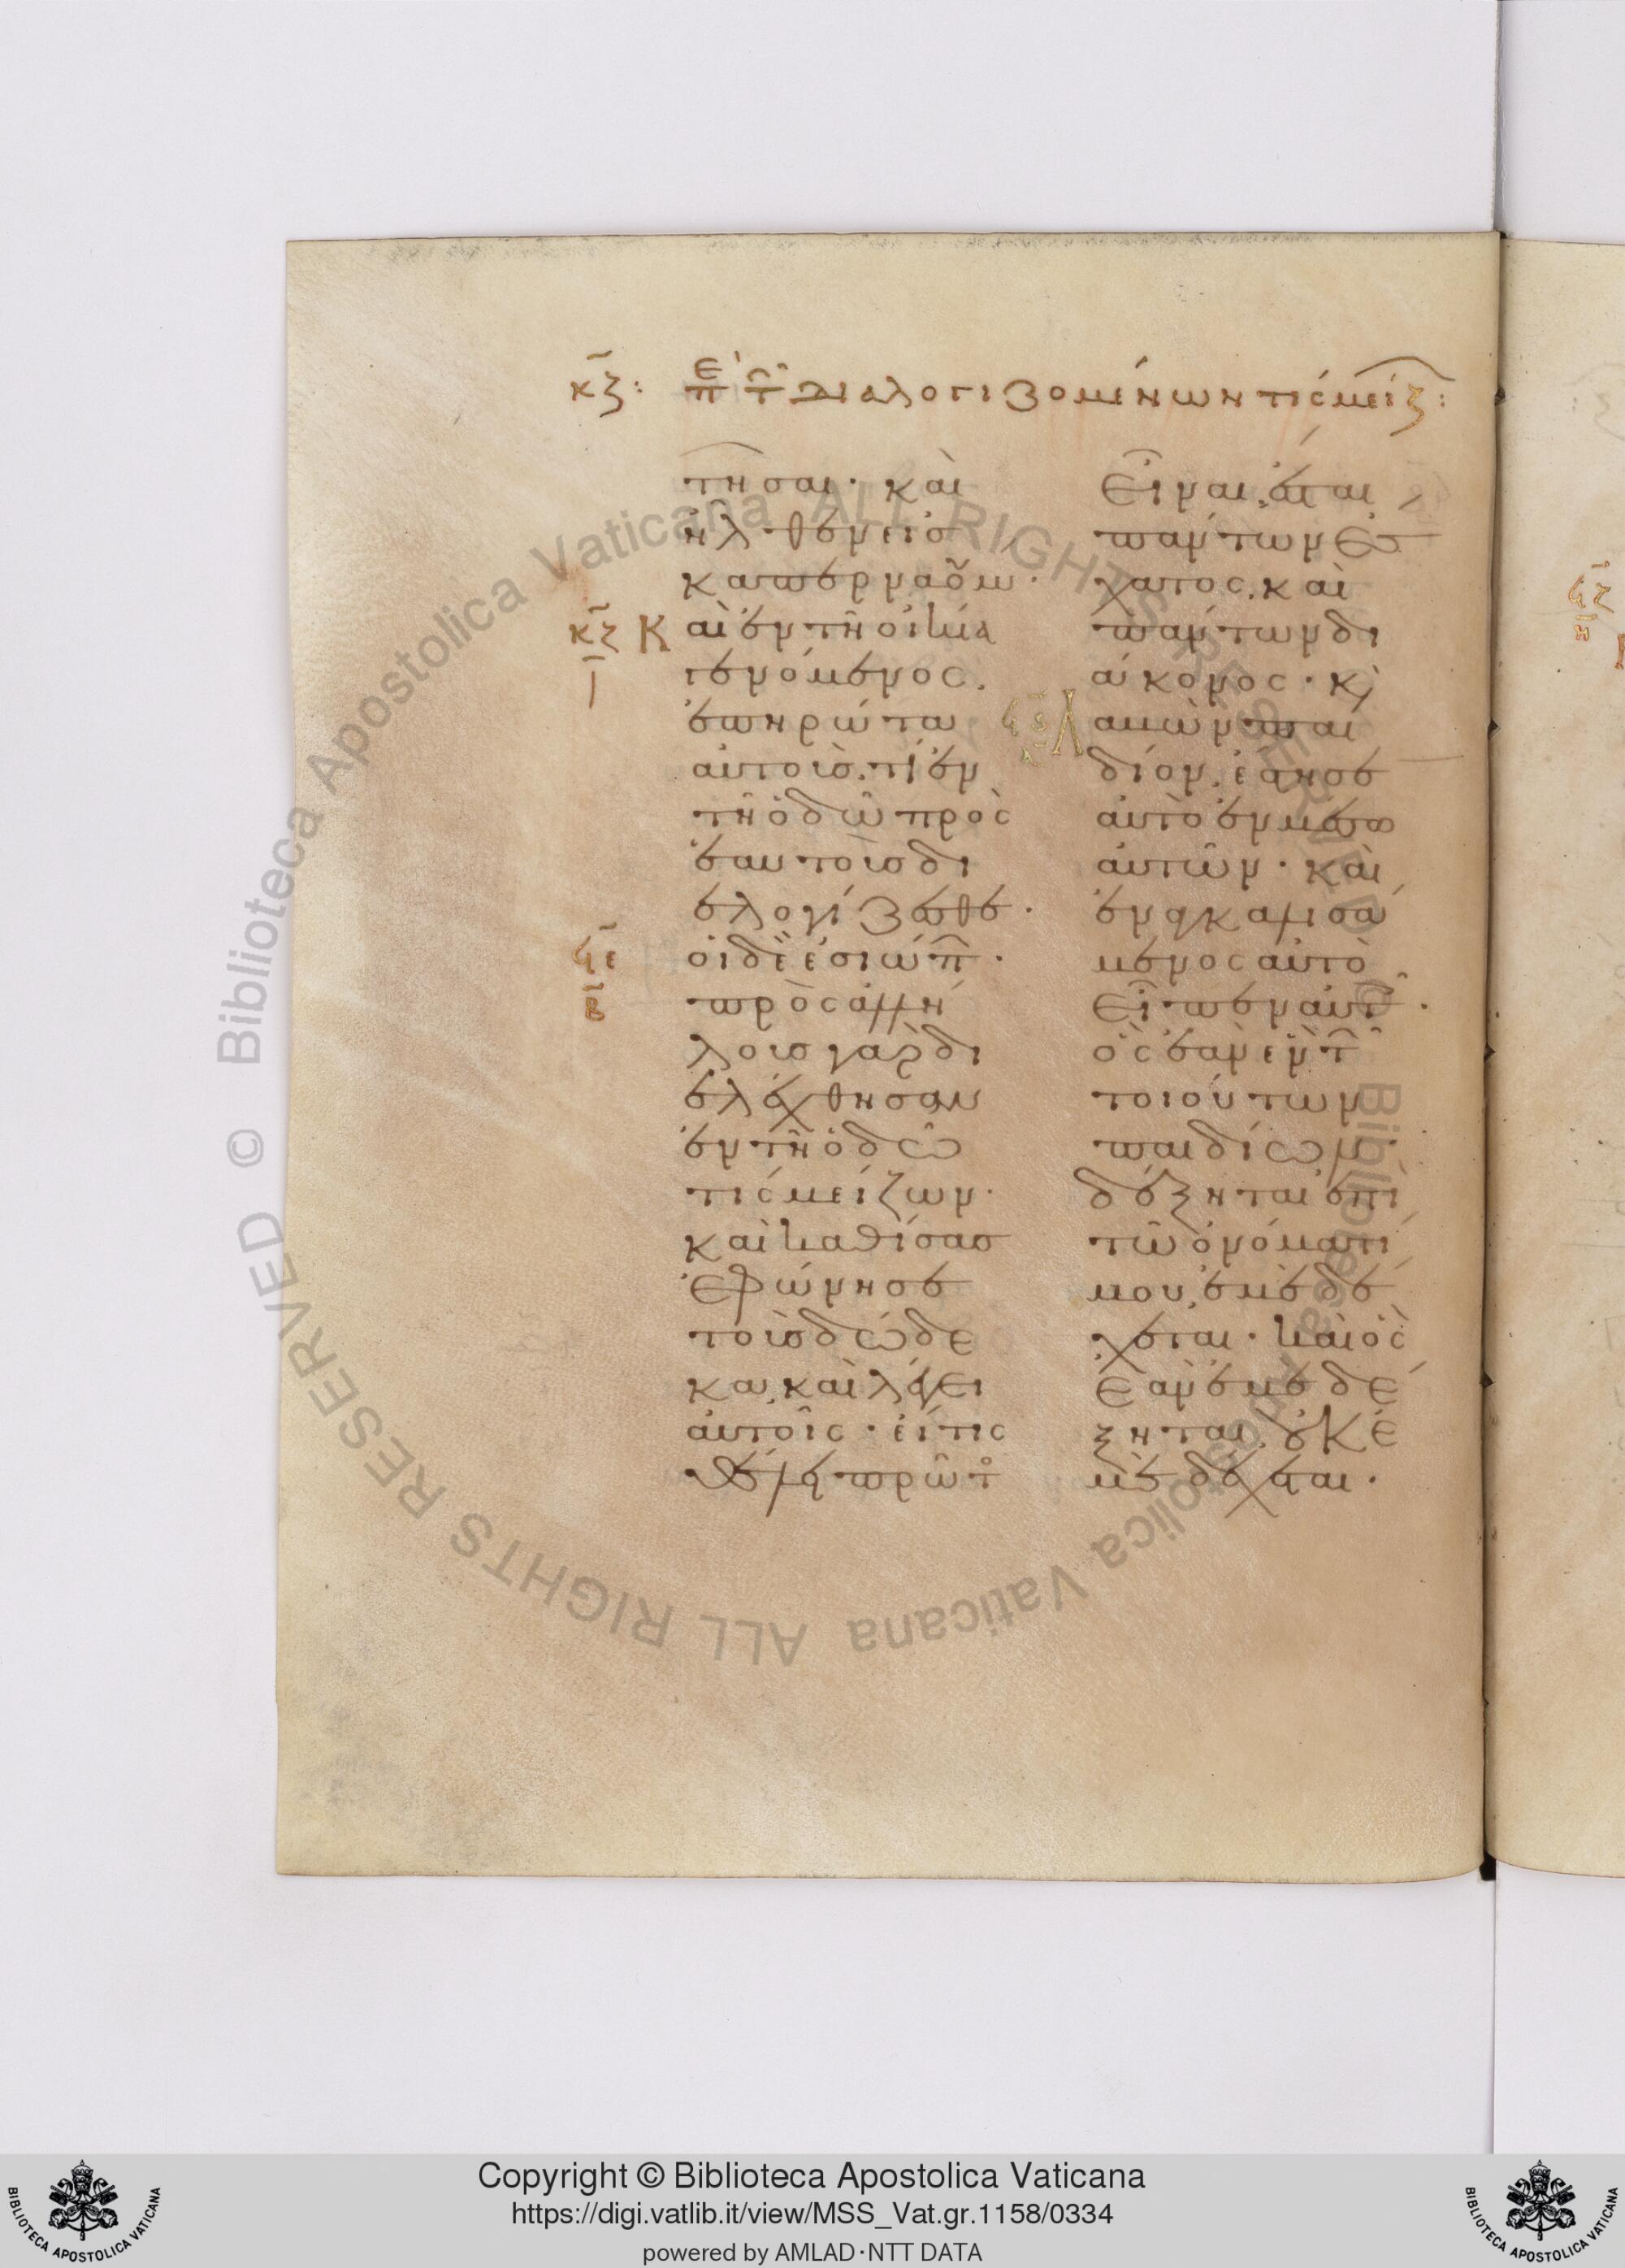 κζ̅: ἐπ τ̑ διαλογιζομένων τίς μείζ:
τῆσαι· καὶ
ἦλθεν εἰσ
καπερναοῦμ·
κζ Καὶ ἐν τῇ οἰκία
γενόμενος.
ἐπηρώτα
αὐτοισ. τί ἐν
τῇ ὁδῶ πρὸς
ἑαυτοὺσ δι
ελογίζεσθε·
ϟε οἱ δὲ ἐσιώπ·
β πρὸς ἀλλή
λουσ γὰρ δι
ελέχθησαν
ἐν τῇ ὁδῶ
τίς μείζων·
καὶ καθίσασ
ἐφώνησε
τοὺσ δώδε
κα, καὶ λέγει
αὐτοῖς· εἴ τις
θέλει πρῶτ
εἶναι, ἔσται
πάντων ἔσ
χατος. καὶ
πάντων δι
άκονος· κ
λαβὼν παι
δίον, ἔστησε
αὐτὸ ἐν μέσω
αὐτῶν· καὶ
ἐναγκαλισά
μενος αὐτὸ
εἶπεν αὐτ·
ὃς ἐὰν ἓν τ
τοιούτων
παιδίων
δέξηται ἐπὶ
τῶ ὀνόματί
μου, ἐμὲ δέ
χεται· καὶ ὃς
ἐὰν ἐμὲ δέ
ξηται, οὐκ ἐ
μὲ δέχεται·
© Biblioteca Apostolica Vaticana ALL RIGHTS RESERVED
Biblioteca Apostolica Vaticana ALL RIGHTS RESERVED
Copyright © Biblioteca Apostolica Vaticana
https://digi.vatlib.it/view/MSS_Vat.gr.1158/0334
powered by AMLAD·NTT DATA
BIBLIOTECA APOSTOLICA VATICANA
BIBLIOTECA APOSTOLICA VATICANA